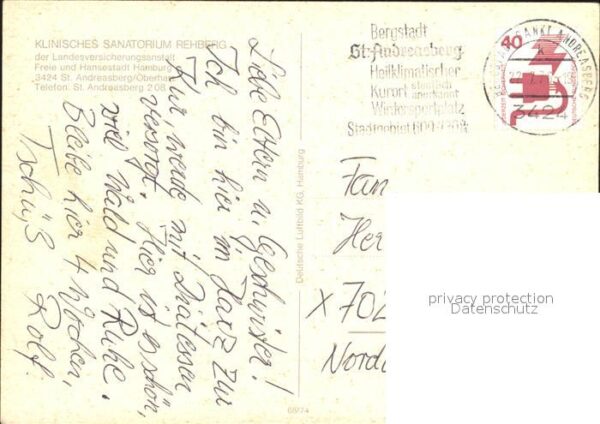 KLINISCHES SANATORIUM REHBERG
der Landesversicherungsanstalt
Freie und Hansestadt Hamburg
3424 St. Andreasberg/Oberharz
Telefon: St. Andreasberg 2 08
Liebe Eltern u. Geschwister!
Ich bin hier im Harz zur
Kur werde mit Diätessen
versorgt. Hier ist es schön,
viel Wald und Ruhe.
Bleibe hier 4 Wochen,
Tschüß Rolf.
Deutsche Luftbild KG, Hamburg
68/74
Bergstadt
St. Andreasberg
Heilklimatischer
Kurort
Wintersportplatz
Stadtgebiet 600-
SANKT ANDREASBERG
3424
40
Fam
Her
X 702
Nord
privacy protection
Datenschutz